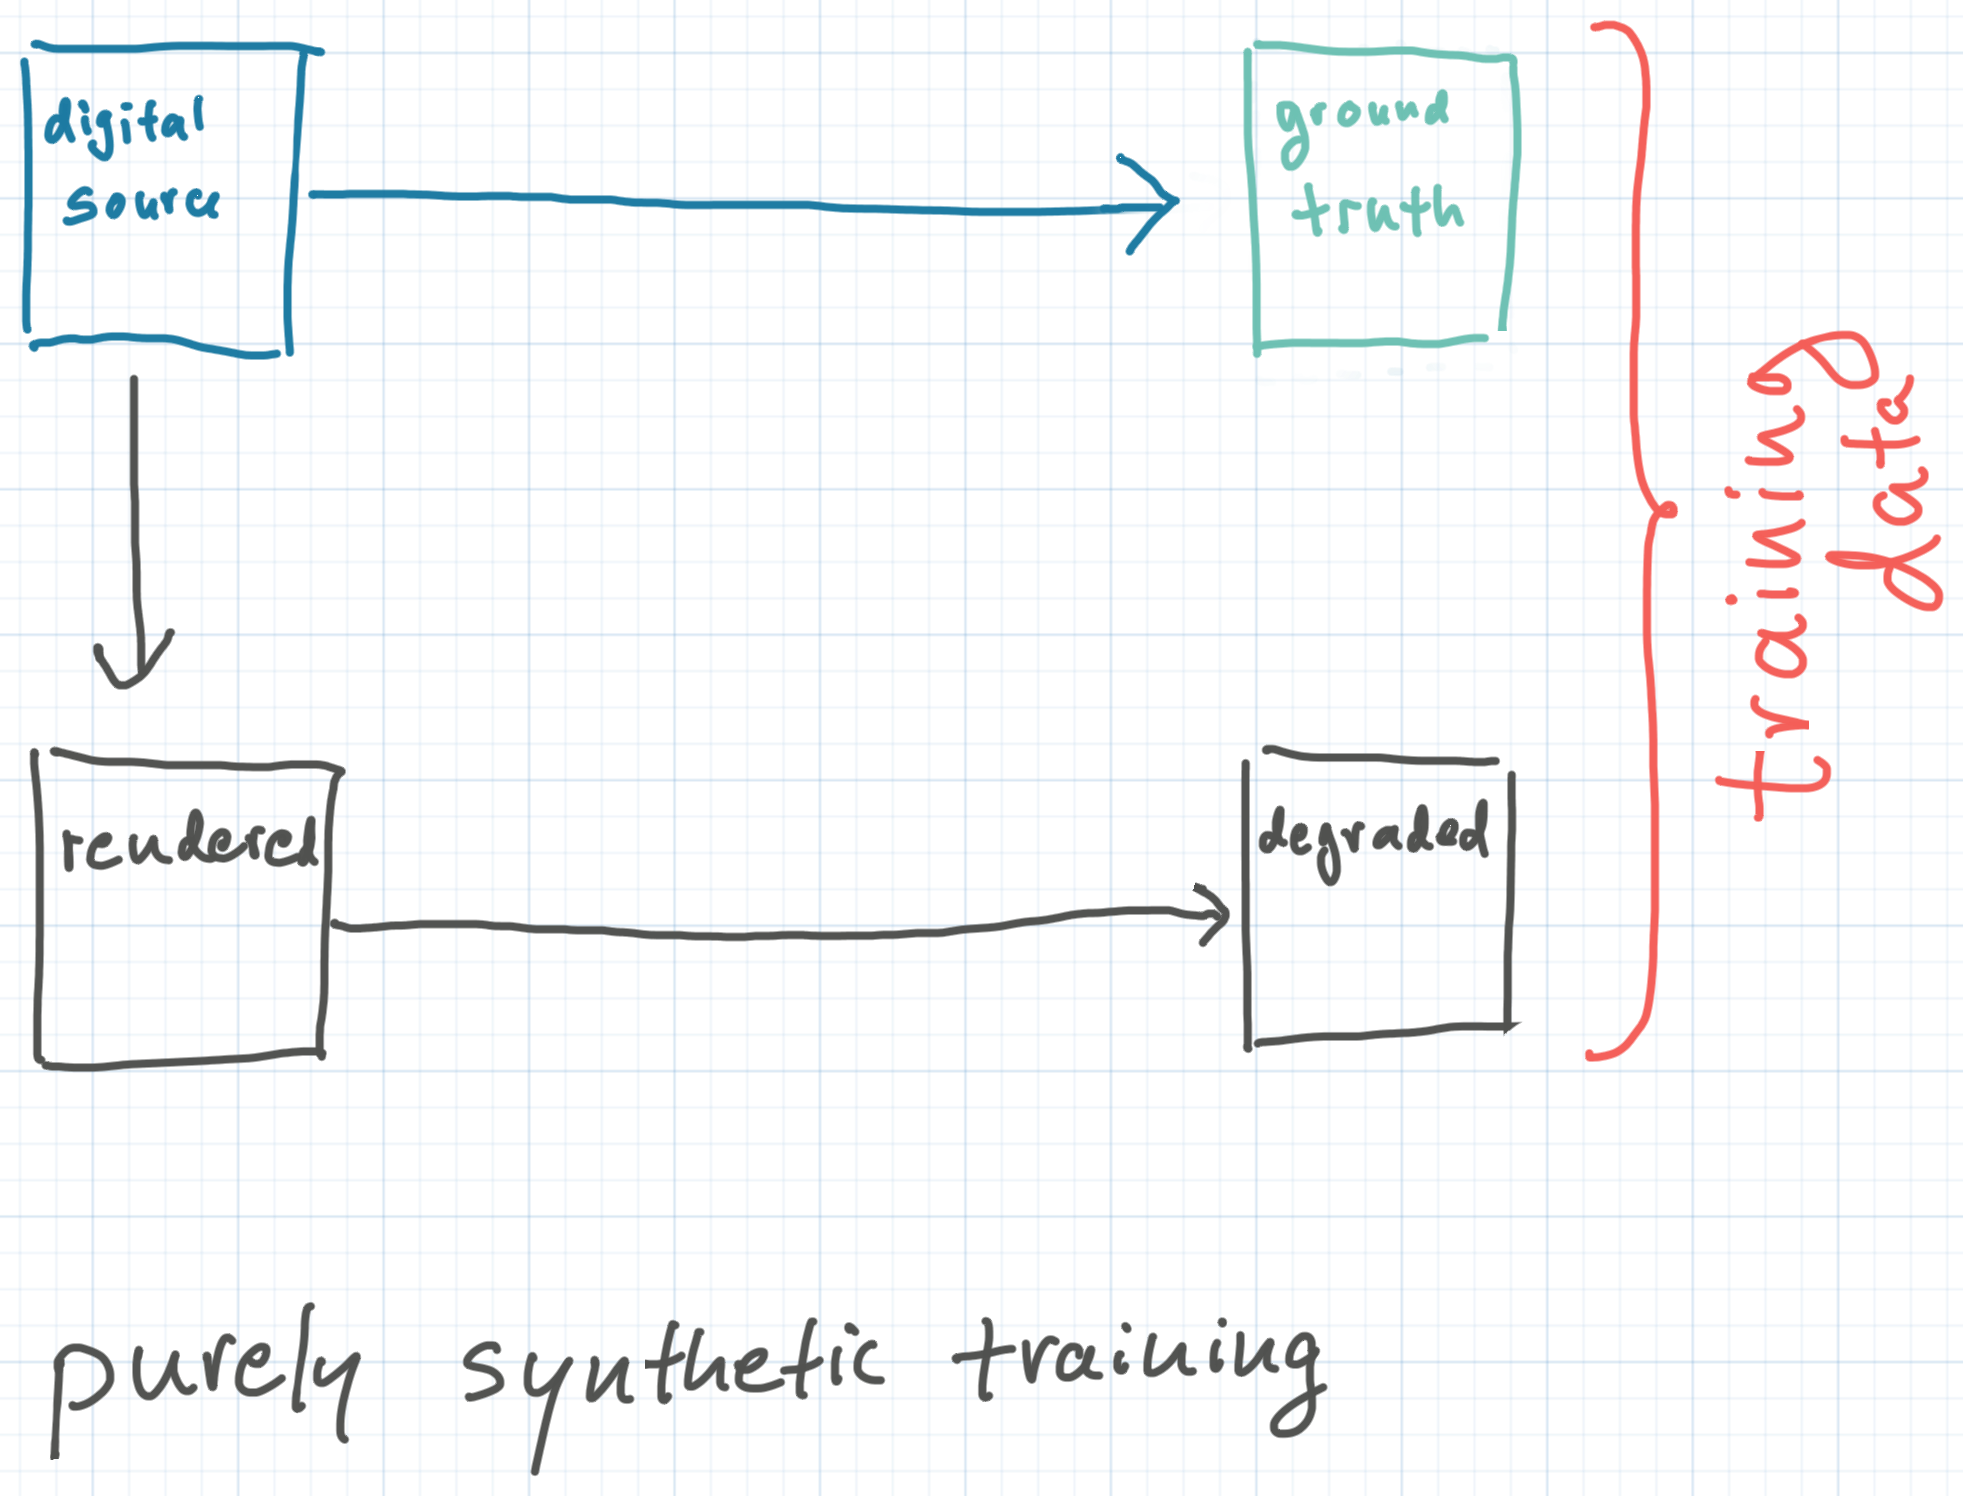 digital
source
ground
truth
training
data
rendered
degraded
purely synthetic training